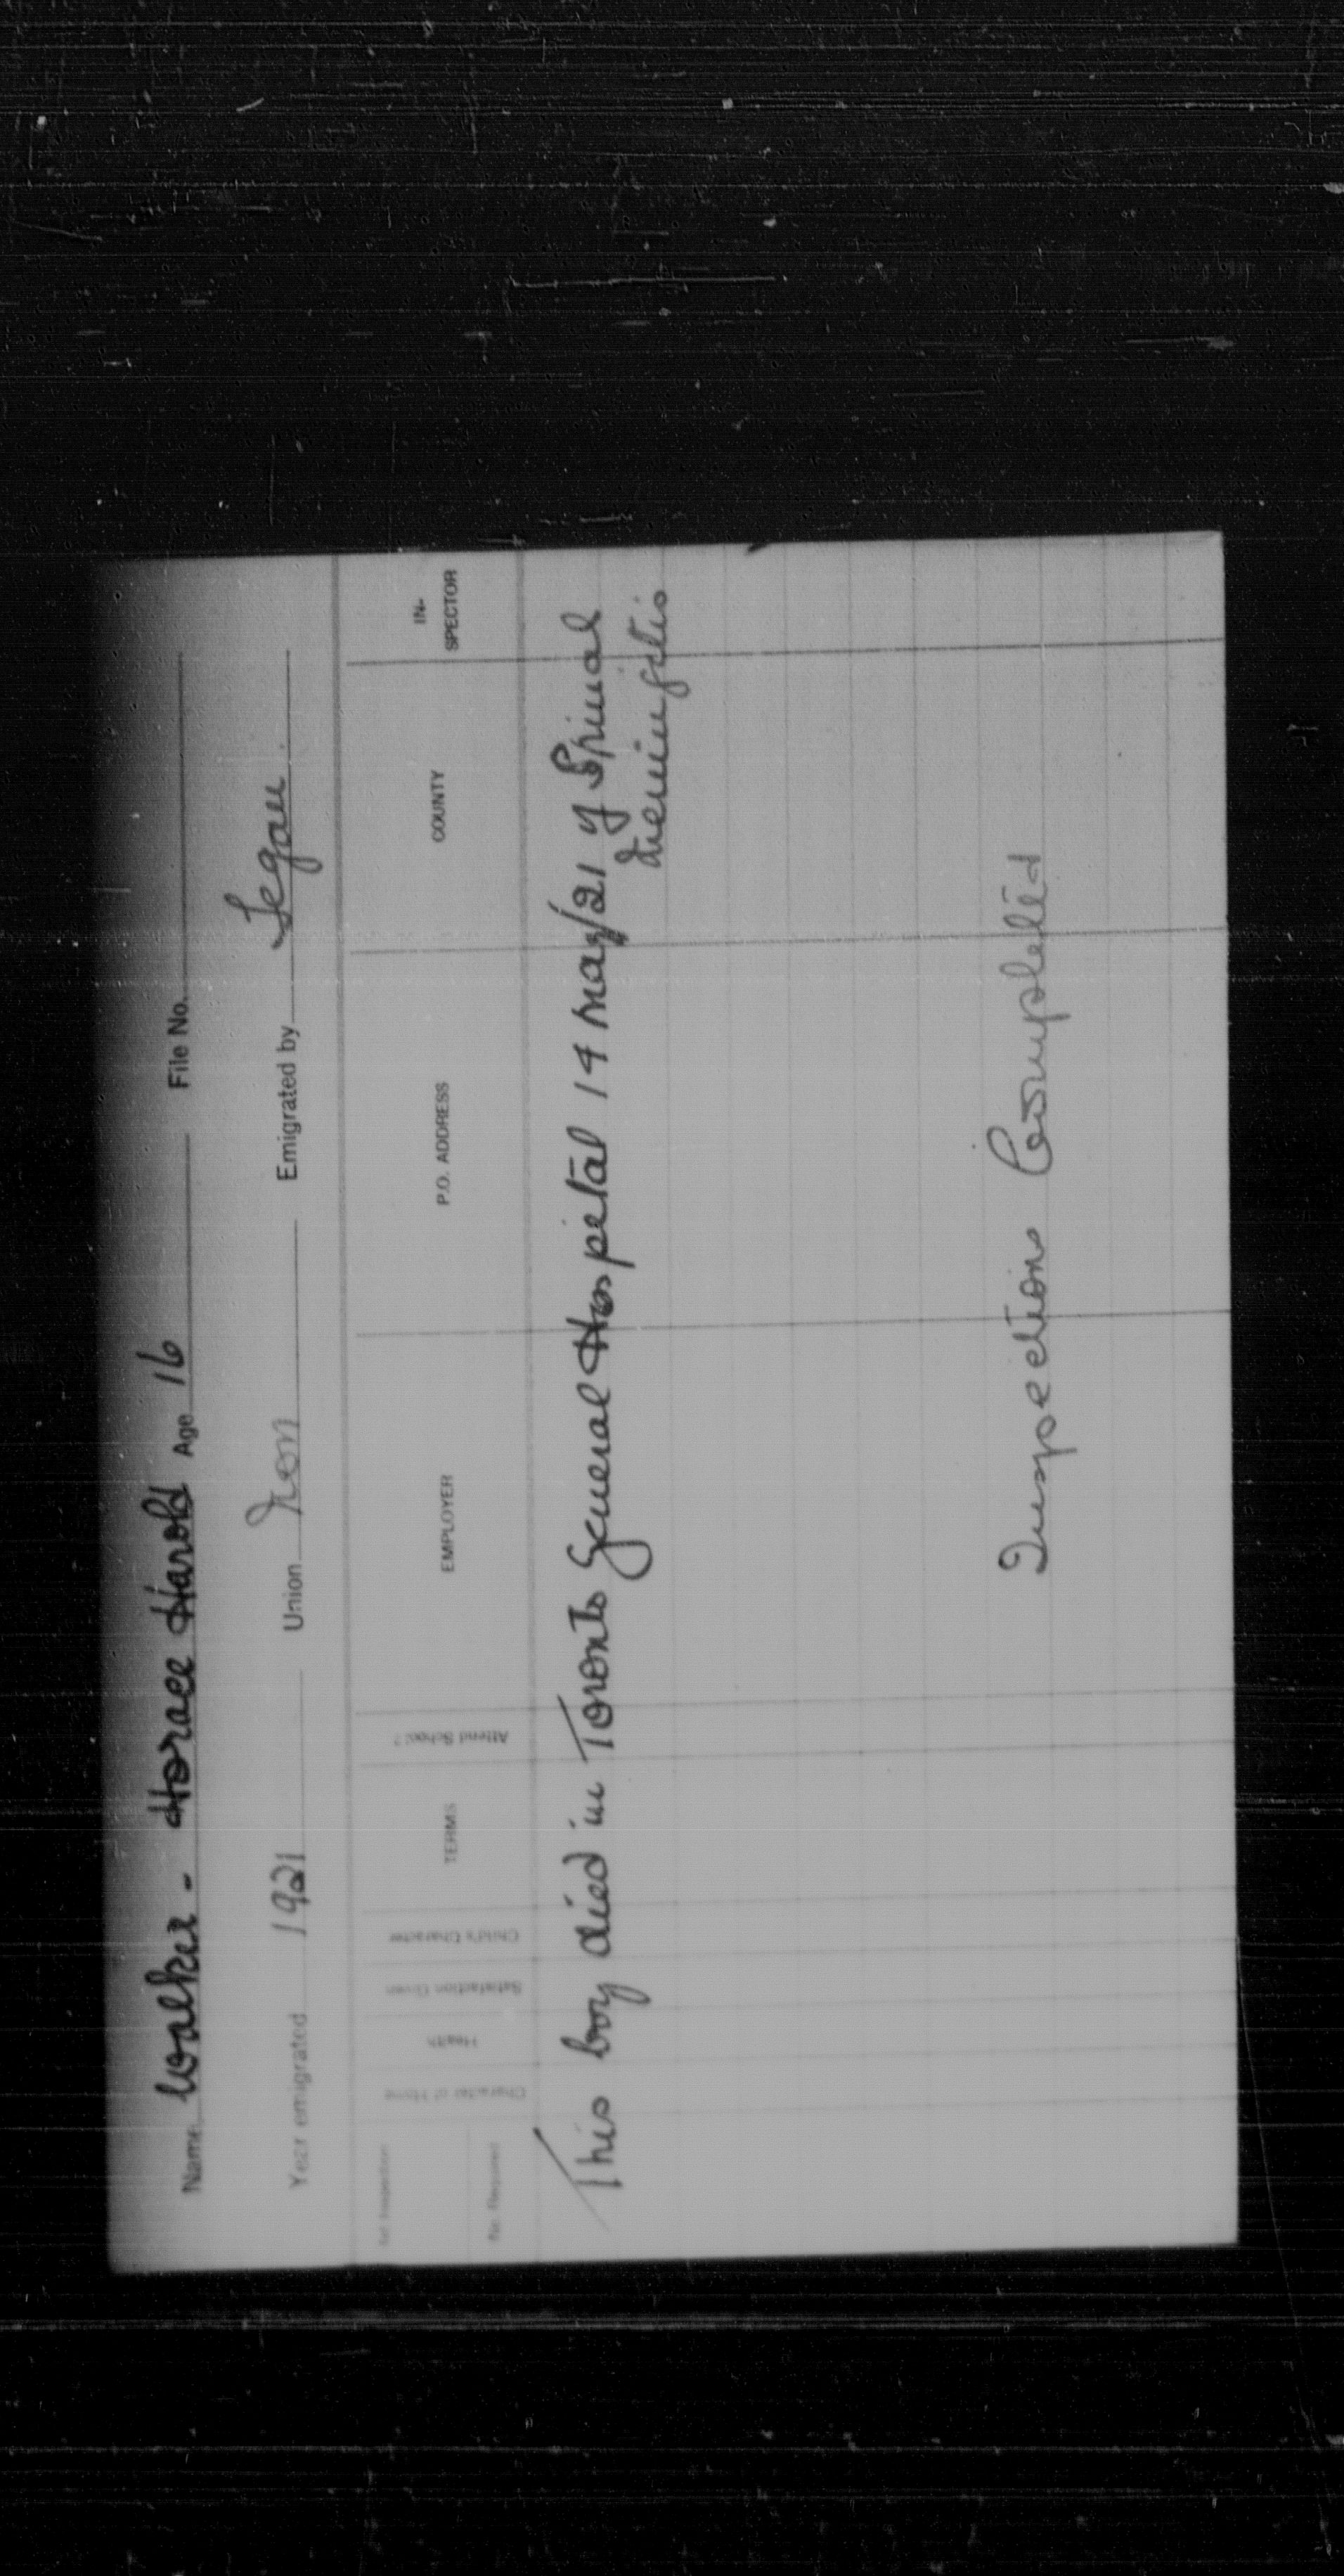 Name Walker - Horace Harold Age 16 File No.
Year emigrated 1921 Union Non Emigrated by Fegan
1st Inspection
No. Required
Character of Home
Health
Satisfaction Given
Child's Character
TERMS
Attend School?
EMPLOYER
P.O. ADDRESS
COUNTY
IN-
SPECTOR
This boy died in Toronto General Hospital 14 May/21 of Spinal
Meningitis
Inspections Completed